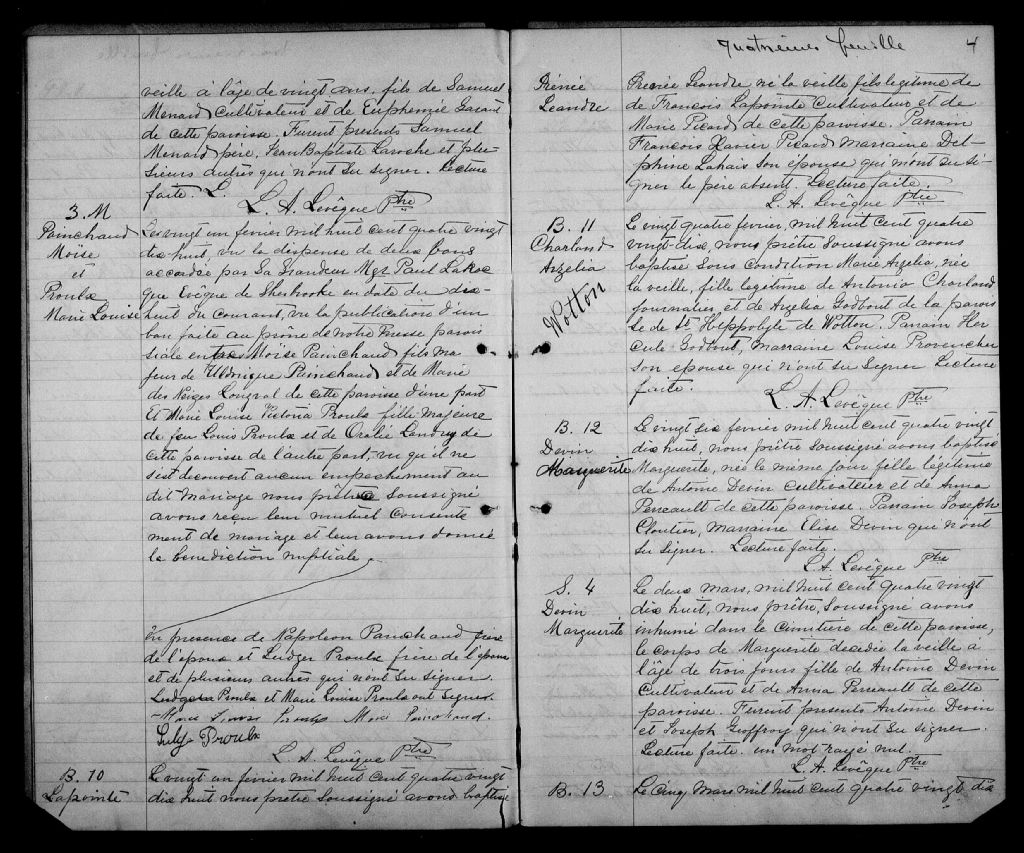 veille à l'âge de vingt ans, fils de Samuel
Menard cultivateur et de Euphemie
de cette paroisse. Furent presents Samuel
Menard père, Jean Baptiste Laroche et plu-
sieurs autres qui n'ont su signer. Lecture
faite. L.
L. A. Levêque Ptre
3. M
Painchaud
Moïse
et
Proulx
Marie Louise
Le vingt un fevrier mil huit cent quatre vingt
dix huit, vu la dispense de deux bans
accordée par Sa Grandeur Mgr Paul LaRoc
que Evêque de Sherbrooke en date du dix
huit du courant, vu la publication d'un
ban faite au prône de notre messe parois
siale entre Moïse Painchaud fils ma
jeur de Painchaud et de Marie
des Neiges Longval de cette paroisse d'une part
Et Marie Louise Victoria Proulx fille majeure
de feu Louis Proulx et de Oralie Landry de
cette paroisse de l'autre part, vu qu'il ne
s'est decouvert aucun empechement au
dit mariage nous prêtre soussigné
avons reçu leur mutuel consente
ment de mariage et leur avons donné
la benediction nuptiale
en presence de Napoleon Painchaud frère
de l'époux et Ludger Proulx frère de l'épouse
et de plusieurs autres qui n'ont su signer.
Ludger Proulx et Marie Louise Proulx ont signés.
Marie Louise Proulx Moïse Painchaud.
Ludg Proulx
L. A. Levêque Ptre
B. 10
Lapointe
Le vingt un fevrier mil huit cent quatre vingt
dix huit nous prêtre soussigné avons baptisé
quatrième feuille 4
Irénée
Leandre
Irenée Leandre né la veille fils legitime de
de Francois Lapointe Cultivateur et de
Marie Picard de cette paroisse. Parrain
François Xavier Picard marraine Del-
phine Lahais son épouse qui n'ont su si-
gner le père absent. Lecture faite.
L. A. Levêque Ptre
B. 11
Charland
Arzelia
Wotton
Le vingt quatre fevrier, mil huit cent quatre
vingt dix, nous prêtre soussigné avons
baptisé sous condition Marie Arzelia, née
la veille, fille legitime de Antonio Charland
journalier et de Arzelia Godbout de la parois
se de St Hippolyte de Wotton. Parrain Her
cule Godbout, marraine Louise Provencher
son epouse qui n'ont su signer Lecture
faite.
L. A. Levêque Ptre
B. 12
Devin
Marguerite
Le vingt six fevrier mil huit cent quatre vingt
dix huit, nous prêtre soussigné avons baptisé
Marguerite, née le meme jour fille légitime
de Antoine Devin cultivateur et de Anna
Perreault de cette paroisse. Parrain Joseph
Cloutier, marraine Elise Devin qui n'ont
su signer. Lecture faite.
L. A. Levêque Ptre
S. 4
Devin
Marguerite
Le deux Mars, mil huit cent quatre vingt
dix huit, nous prêtre, soussigné avons
inhumé dans le cimetière de cette paroisse,
le corps de Marguerite decedée la veille à
l'âge de trois jours fille de Antoine Devin
Cultivateur et de Anna Perreault de cette
paroisse. Furent presents Antoine Devin
et Joseph Geoffroy qui n'ont su signer.
Lecture faite. un mot rayé nul.
L. A. Levêque Ptre
B. 13
Le Cinq Mars mil huit cent quatre vingt dix